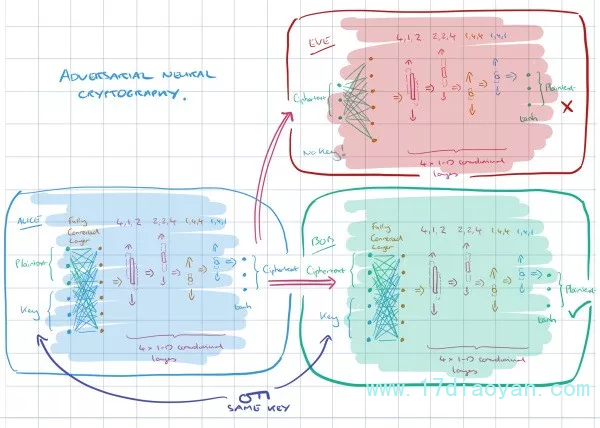 ADVERSARIAL NEURAL
CRYPTOGRAPHY.
EVE
4,1,2 2,2,4 1,4,4 1,4,1
Ciphertext
Plaintext
tanh
No Key!
4 x 1-D convolutional
layers
ALICE
Fully
Connected
Layer
4,1,2 2,2,4 1,4,4 1,4,1
Plaintext
Key
Ciphertext
tanh
4 x 1-D convolutional
layers
BOB
Fully
Connected
Layer
4,1,2 2,2,4 1,4,4 1,4,1
Ciphertext
Key
Plaintext
tanh
4 x 1-D convolutional
layers
SAME KEY
www.17diaoyan.com